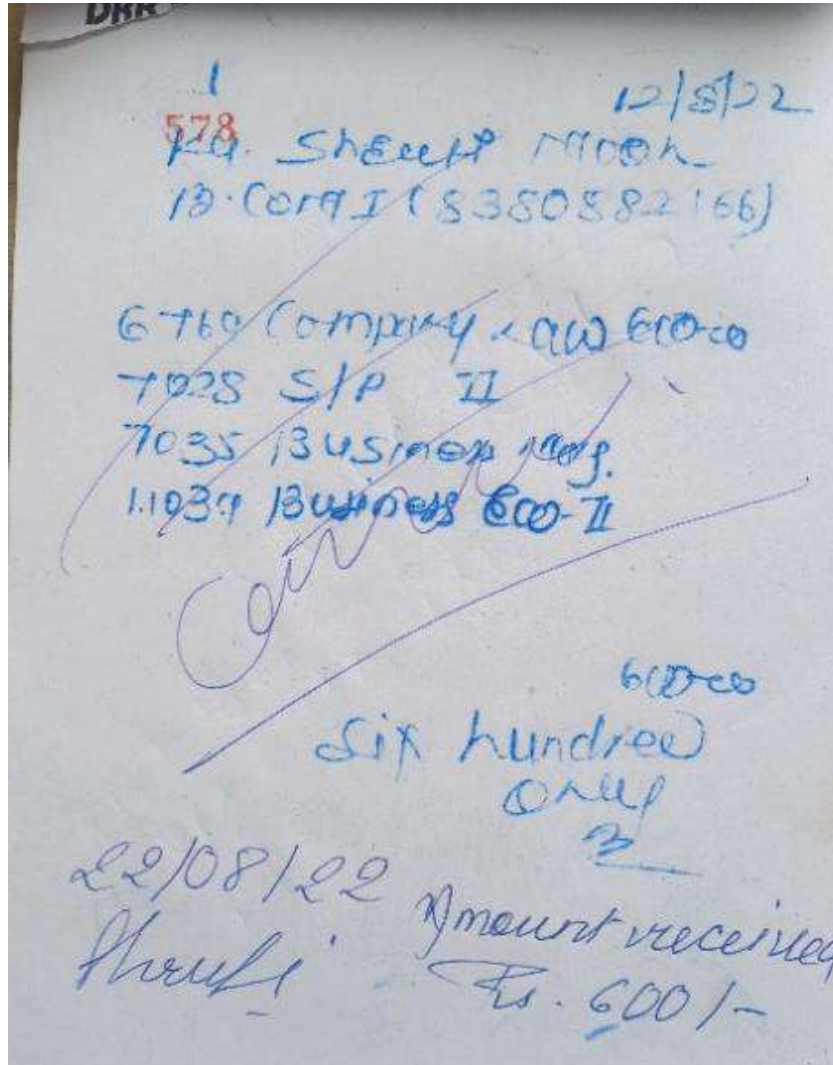 1
12/8/22
578
Ku. Shruti Moon
B.Com I (8380882166)
6760 Company Law 600-00
7028 S/P II
7035 Business
11039 Business Eco-II
600-00
Six hundred
only
22/08/22
Amount received
Shruti
Rs. 600/-